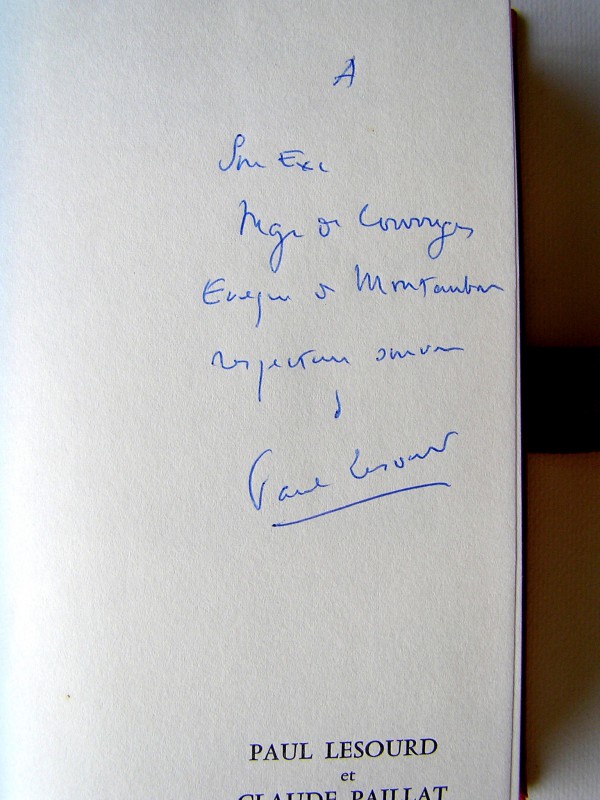 A
Son Exc
Mgr de Courrèges
Evêque de Montauban
respectueux souvenir
d
Paul Lesourd
PAUL LESOURD
et
CLAUDE PAILLAT